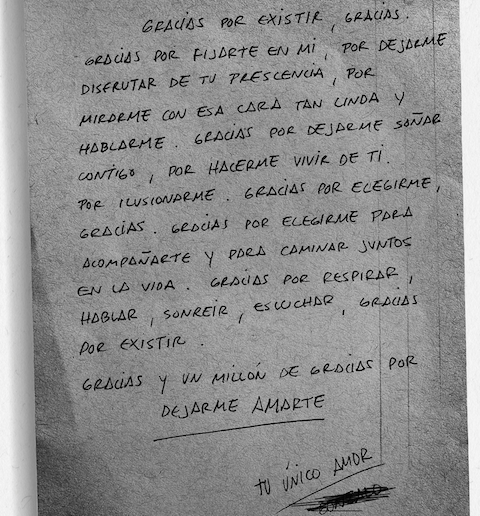 GRACIAS POR EXISTIR, GRACIAS.
GRACIAS POR FIJARTE EN MI, POR DEJARME
DISFRUTAR DE TU PRESCENCIA, POR
MIRARME CON ESA CARA TAN LINDA Y
HABLARME. GRACIAS POR DEJARME SOÑAR
CONTIGO, POR HACERME VIVIR DE TI.
POR ILUSIONARME. GRACIAS POR ELEGIRME,
GRACIAS. GRACIAS POR ELEGIRME PARA
ACOMPAÑARTE Y PARA CAMINAR JUNTOS
EN LA VIDA. GRACIAS POR RESPIRAR,
HABLAR, SONREIR, ESCUCHAR, GRACIAS
POR EXISTIR.
GRACIAS Y UN MILLÓN DE GRACIAS POR
DEJARME AMARTE
TU ÚNICO AMOR